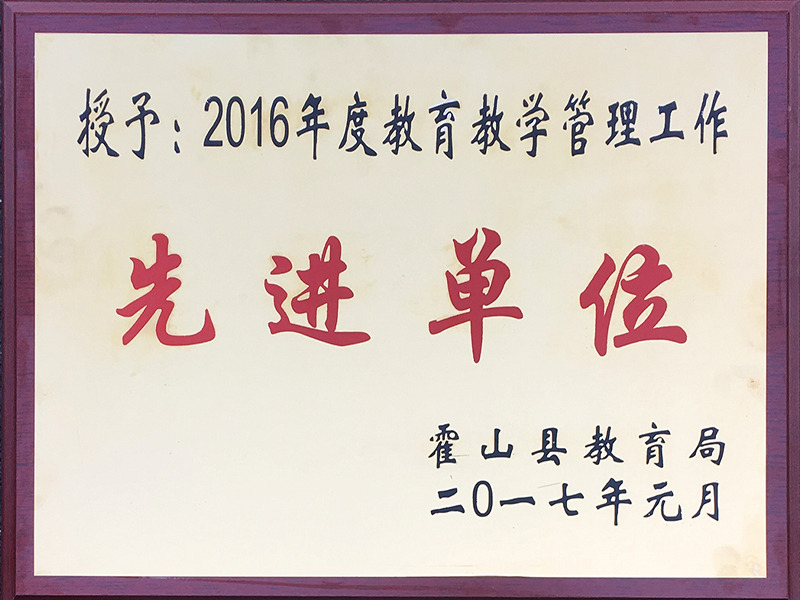 授予：2016年度教育教学管理工作
先进单位
霍山县教育局
二0一七年元月